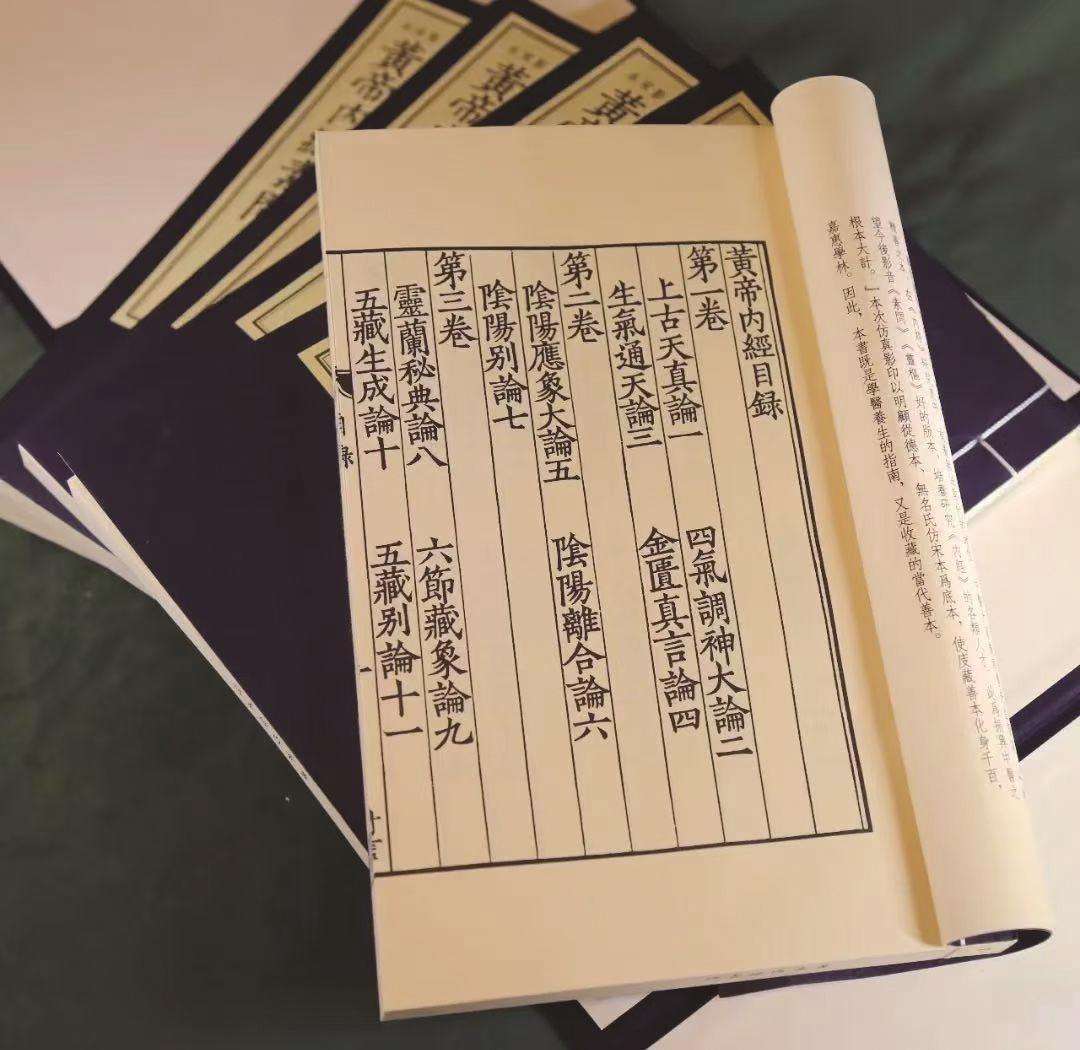 黃帝內經目録
第一卷
上古天真論一
四氣調神大論二
生氣通天論三
金匱真言論四
第二卷
陰陽應象大論五
陰陽離合論六
陰陽别論七
第三卷
靈蘭秘典論八
六節藏象論九
五藏生成論十
五藏别論十一
望今後影音《素問》《靈樞》好的版本，培養研究《内經》的各類人才，
根本大計。』本次仿真影印以明顧從德本、無名氏仿宋本爲底本，使庋藏善本化身千百，
嘉惠學林。因此，本書既是學醫養生的指南，又是收藏的當代善本。
黃帝內經素問
黃帝
黃